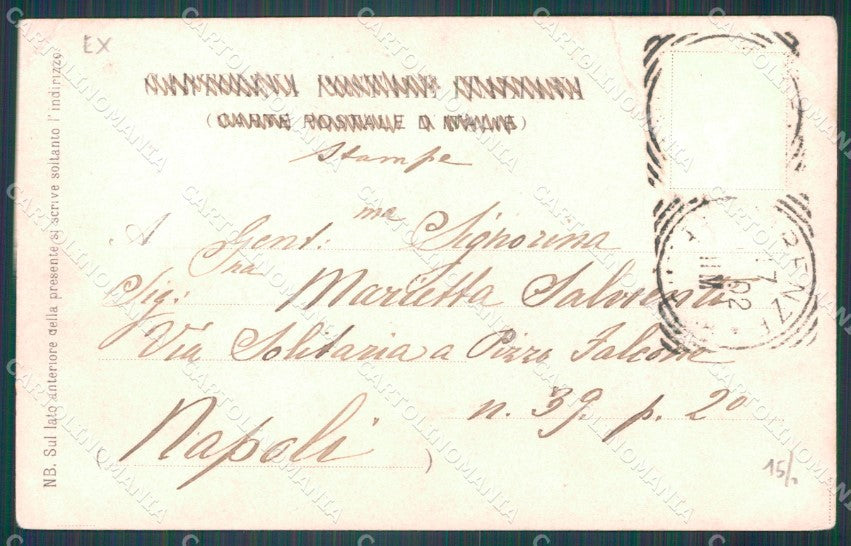 EX
CARTOLINA POSTALE ITALIANA
(CARTE POSTALE D'ITALIE)
Stampe
A Gent: ma Signorina
Sig: ra Marietta
Via Solitaria a Pizzo Falcone
n. 39. p. 2º
Napoli
NB. Sul lato anteriore della presente si scrive soltanto l'indirizzo.
RENZE
7
02
15/
CARTOLINOMANIA